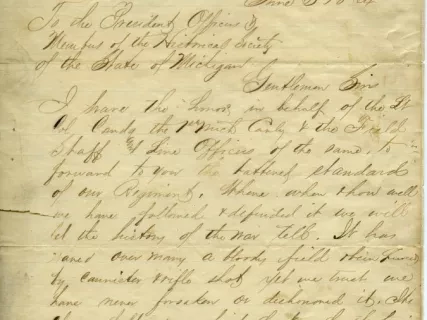 To the President Officers &
Members of the Historical Society
of the State of Michigan
Gentlemen Sirs
I have the honor in behalf of the Lt
Col Comdg the 1st Mich Cavly & the Field
Staff & Line Officers of the same, to
forward to you the battered standard
of our Regiment. Where when & how well
we have followed & defended it we will
let the history of the war tell. It has
waved over many a bloody field
by cannister & rifle shot yet we trust we
have never forsaken or dishonored it. The